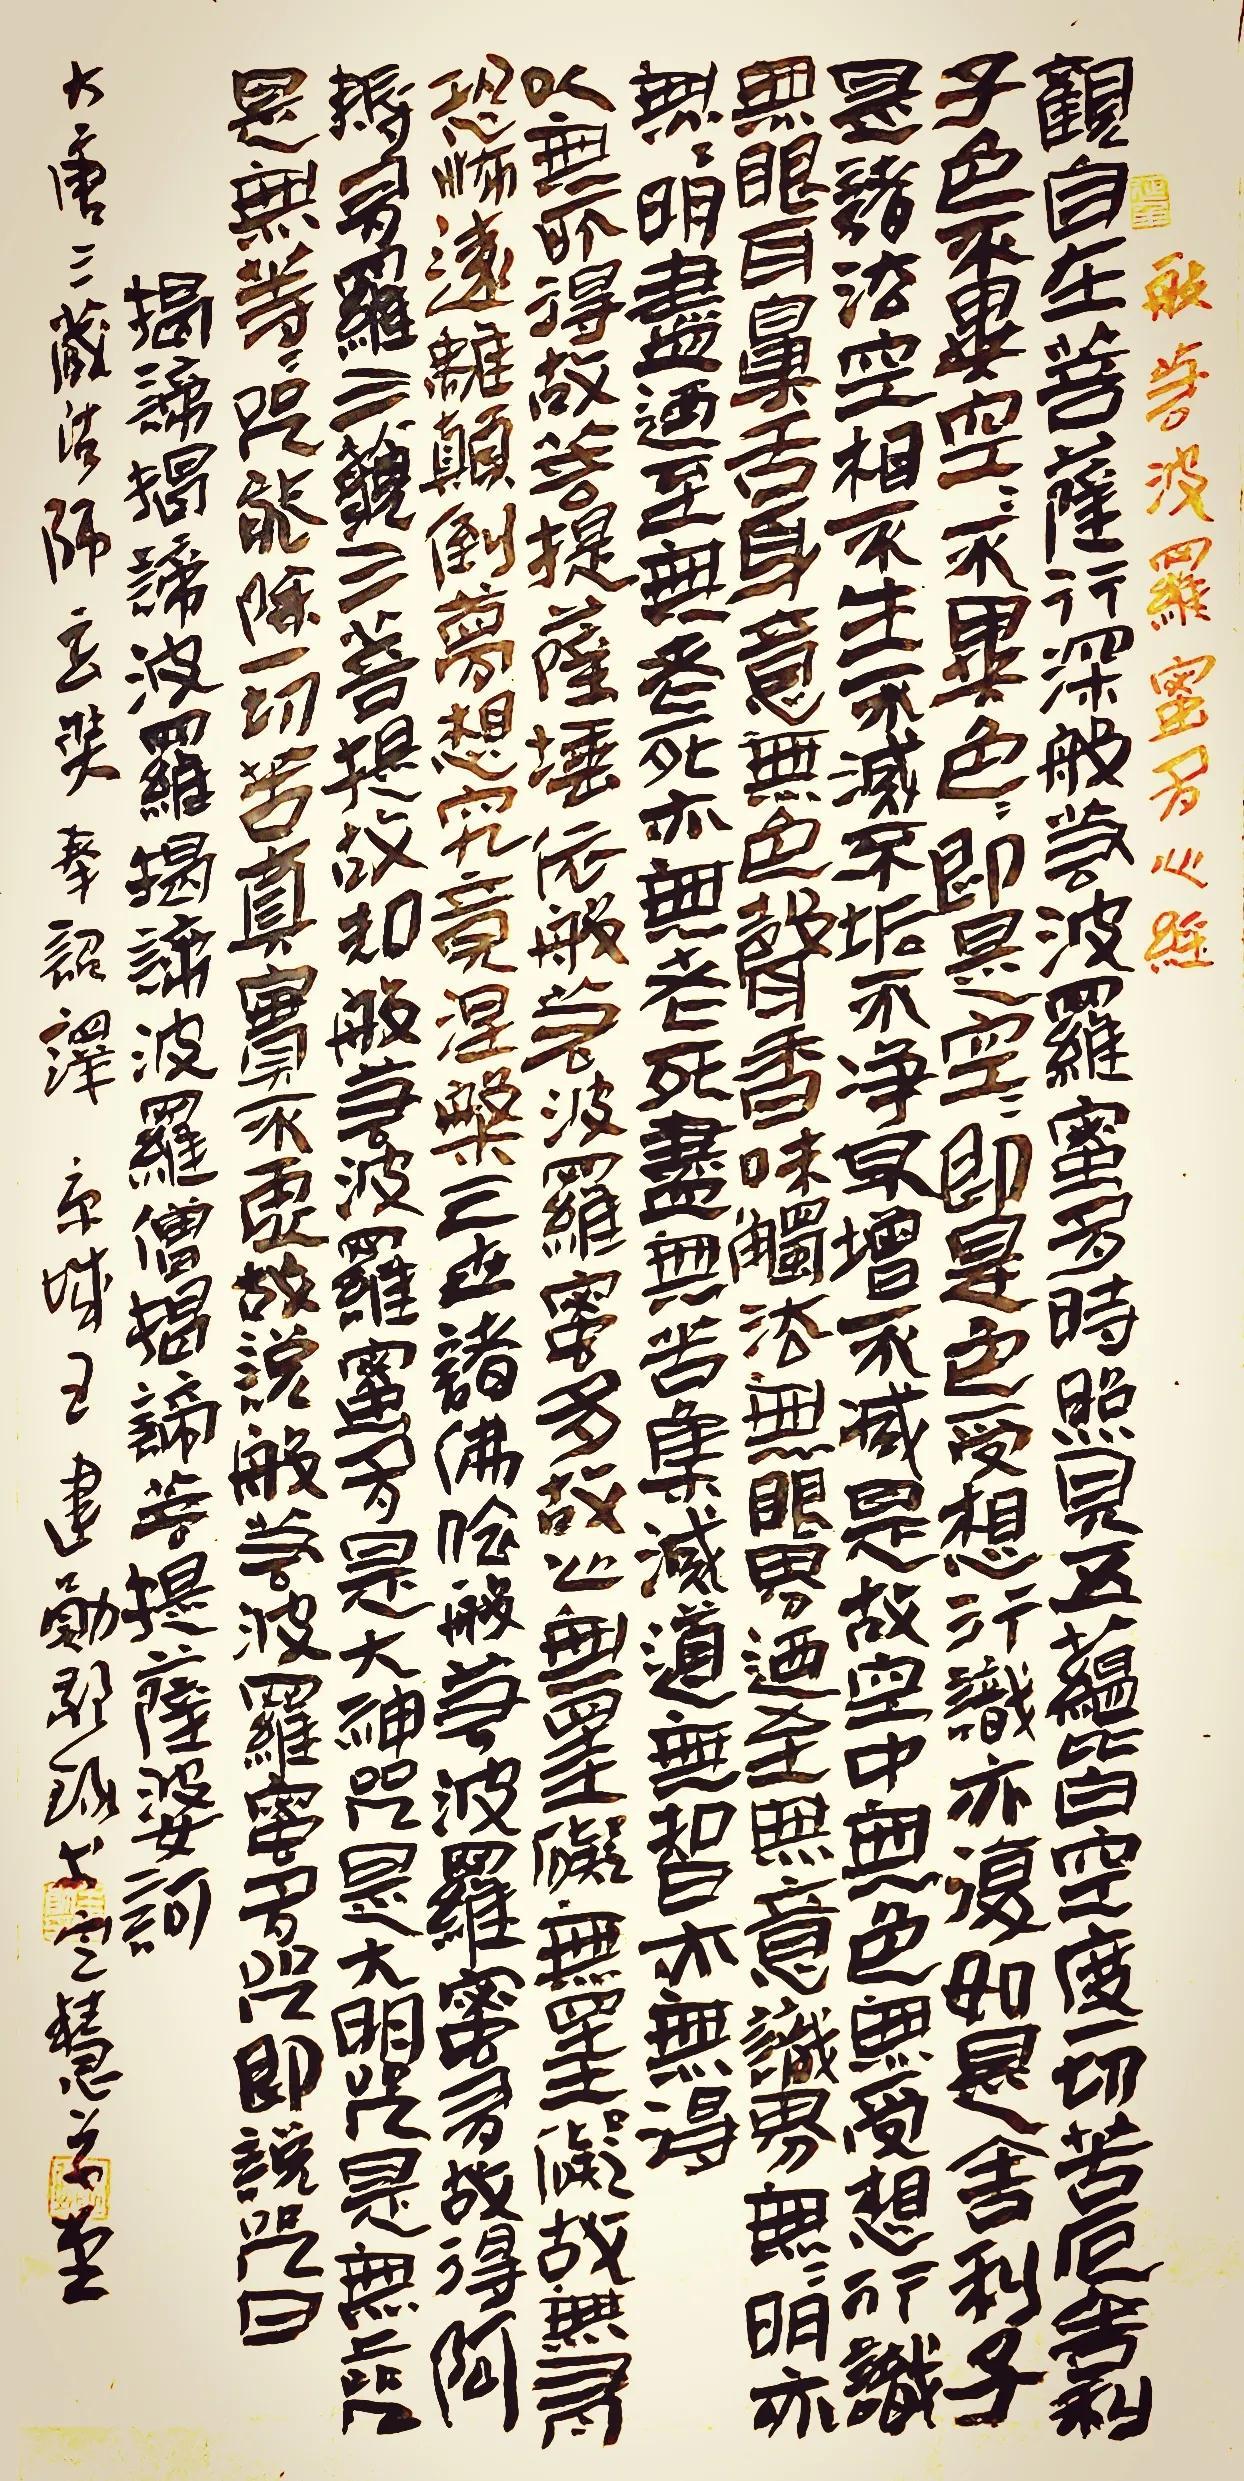 般若波羅蜜多心經
觀自在菩薩行深般若波羅蜜多時照見五蘊皆空度一切苦厄舍利
子色不異空〻不異色〻即是空〻即是色受想行識亦復如是舍利子
是諸法空相不生不滅不垢不净不增不減是故空中無色無受想行識
無眼耳鼻舌身意無色聲香味觸法無眼界迺至無意識界無〻明亦
無〻明盡迺至無老死亦無老死盡無苦集滅道無智亦無得
以無所得故菩提薩埵依般若波羅蜜多故心無罣礙無罣礙故無有
恐怖遠離顛倒夢想究竟涅槃三世諸佛依般若波羅蜜多故得阿
耨多羅三藐三菩提故知般若波羅蜜多是大神咒是大明咒是無上咒
是無等〻咒能除一切苦真實不虛故説般若波羅蜜多咒即説咒曰
揭諦揭諦波羅揭諦波羅僧揭諦菩提薩婆訶
大唐三藏法師玄奘奉詔譯 京城王建勛敬録於雲慧草堂